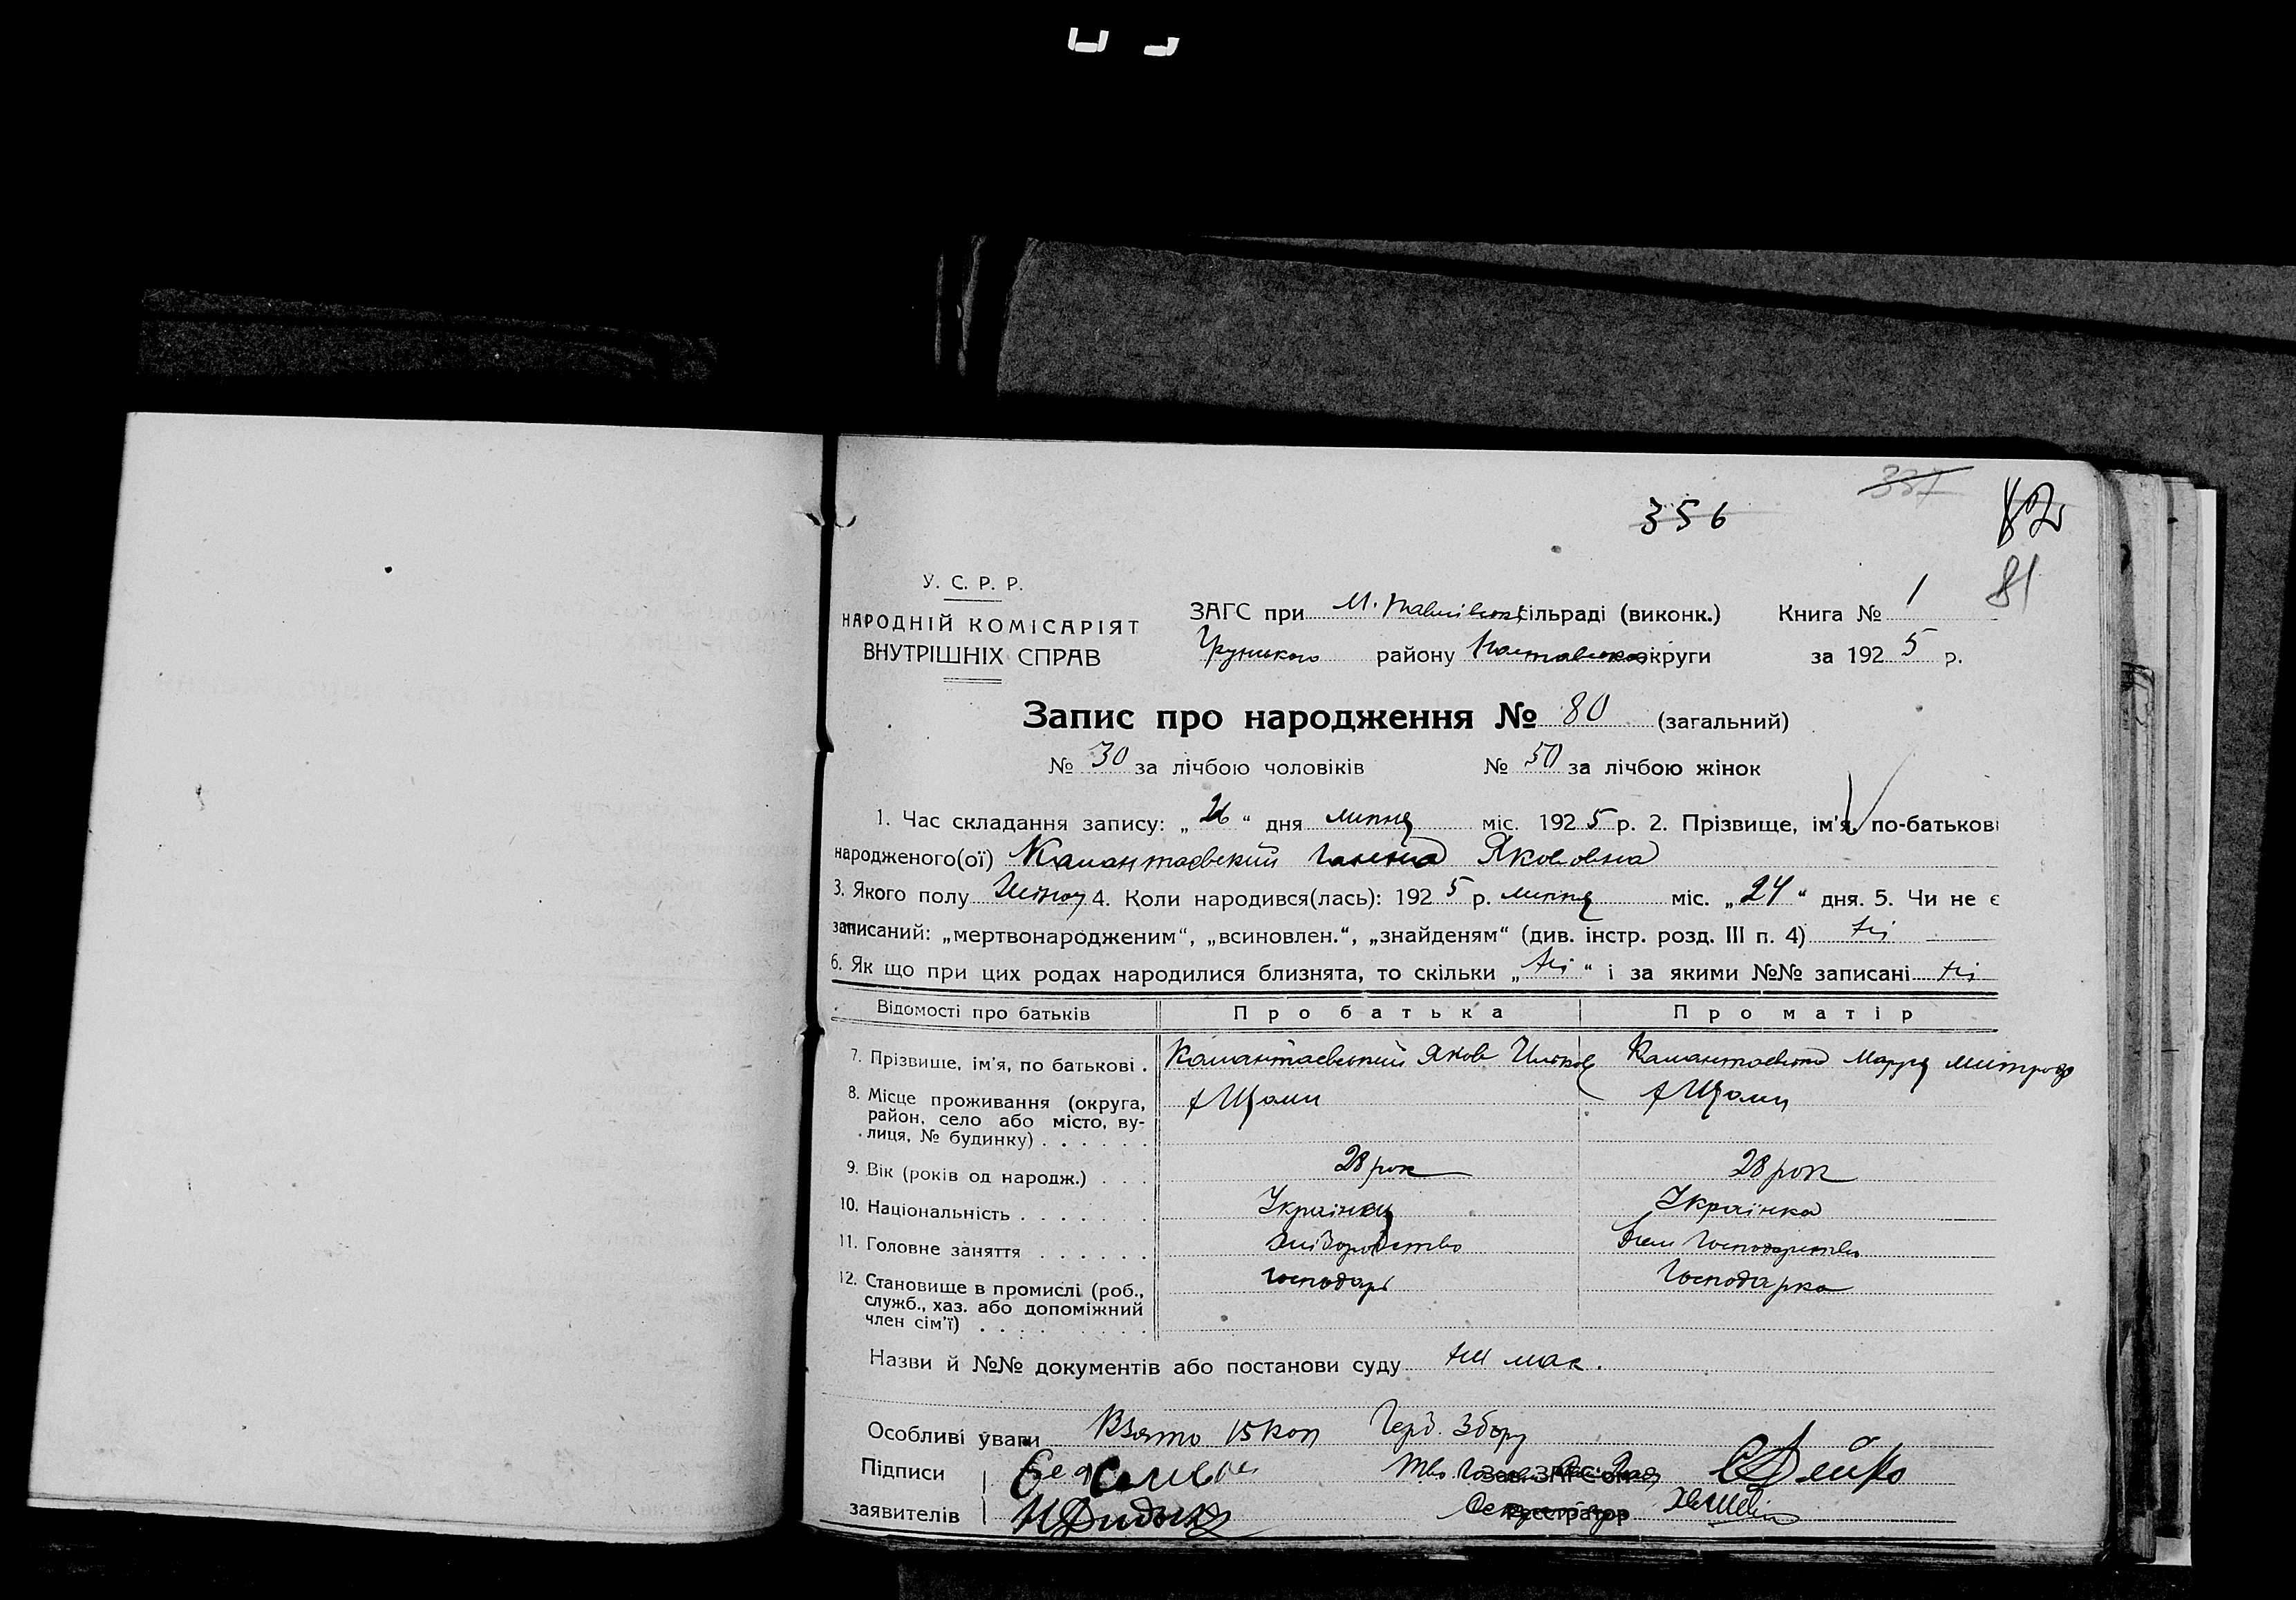 337
356
82
81
У. С. Р. Р.
НАРОДНІЙ КОМІСАРІЯТ
ВНУТРІШНІХ СПРАВ
ЗАГС при М. Павлівськ. сільраді (виконк.) Книга № 1
Грунського району Полтавської округи за 1925 р.
Запис про народження № 80 (загальний)
№ 30 за лічбою чоловіків № 50 за лічбою жінок
1. Час складання запису: „26“ дня липня міс. 1925 р. 2. Прізвище, ім'я, по-батькові
народженого(ої) Камантаєвский Якововна
3. Якого полу Жіноч 4. Коли народився(лась): 1925 р. липня міс. „24“ дня. 5. Чи не є
записаний: „мертвонародженим“, „всиновлен.“, „знайденям“ (див. інстр. розд. III п. 4) ні
6. Як що при цих родах народилися близнята, то скільки „ні“ і за якими №№ записані ні
Відомості про батьків Про батька Про матір
7. Прізвище, ім'я, по батькові . Камантаєвський Яков Камантаєвска
8. Місце проживання (округа, район, село або місто, вулиця, № будинку) . . . . . .
9. Вік (років од народж.) . . . 28 рок 28 рок
10. Національність . . . . . . . Українец Українка
11. Головне заняття . . . . . . хліборобство Господарство
12. Становище в промислі (роб., служб., хаз. або допоміжний член сім'ї) . . . . . . . . Господарь Господарка
Назви й №№ документів або постанови суду ни має.
Особливі уваги Взято 15 коп Герб. Збору
Підписи Зав. ЗАГС'ом
заявителів Секретарь Реєстратор